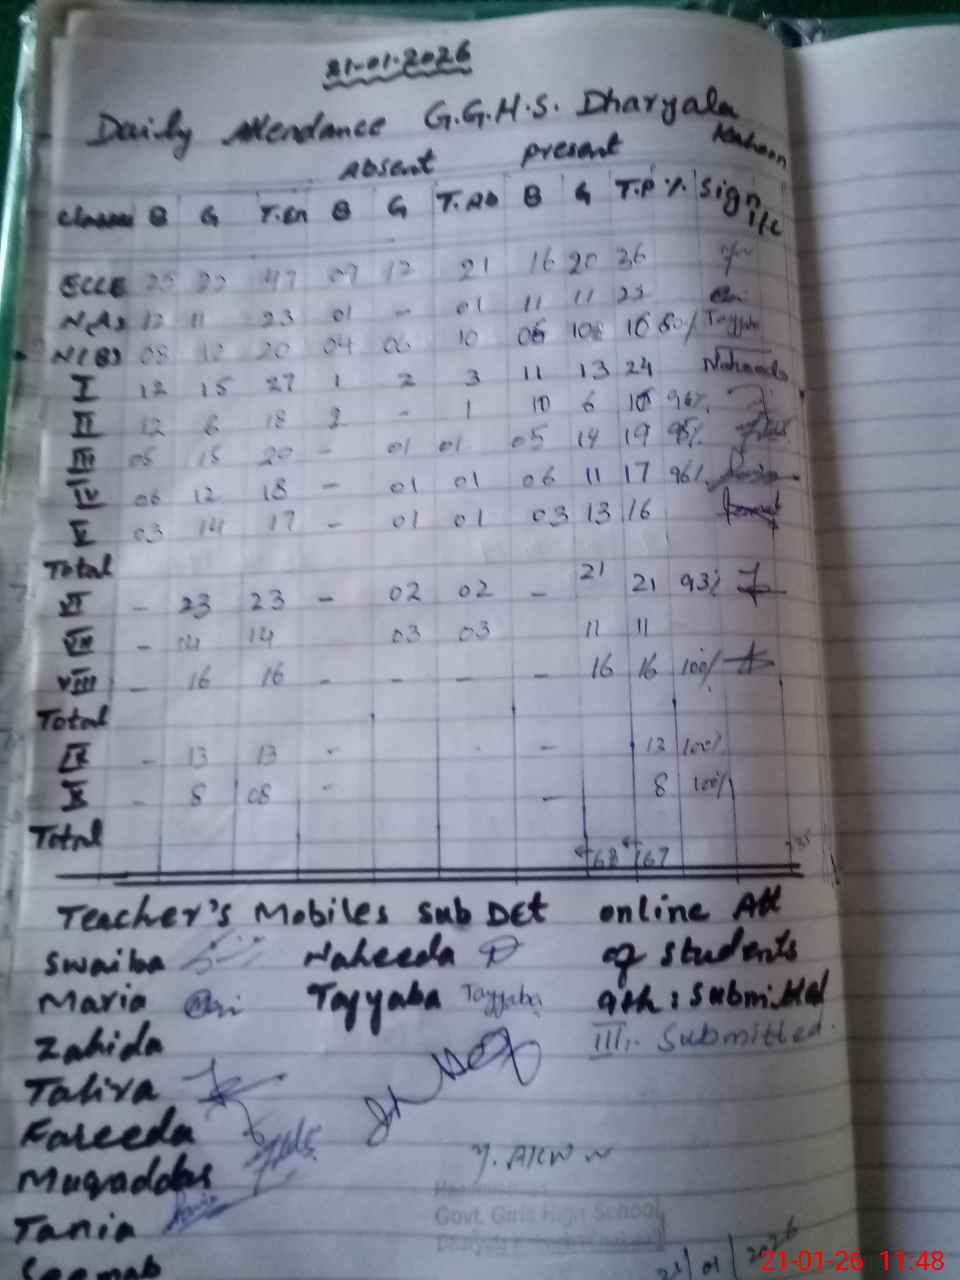 21-01-2026
Daily Attendance G.G.H.S. Dharyala
Kahoon
Absent present
Classes B G T.En B G T.Ab B G T.P % Sign I/C
ECCE 25 22 47 09 12 21 16 20 36
N(A) 12 11 23 01 - 01 11 11 22
N(B) 08 12 20 04 06 10 10 80% Tayyaba
I 12 15 27 1 2 3 11 13 24 Naheeda
II 12 6 18 2 - 1 10 6 96%
III 05 15 20 - 01 01 05 14 19 95%
IV 06 12 18 - 01 01 06 11 17 96%
V 03 14 17 - 01 01 03 13 16
Total
VI - 23 23 - 02 02 - 21 21 93%
VII - 14 14 03 03 11 11
VIII - 16 16 - - - - 16 16 100%
Total
IX - 13 13 - - 13 100%
X - 8 08 - - 8 100%
Total
168 167
Teacher's Mobiles Sub DEt online Att
Swaiba Naheeda of students
Maria Tayyaba Tayyaba 9th: Submitted
Zahida III. Submitted.
Tahira
Fareeda
Muqaddas
Tania
Govt. Girls High School
Seemab
21/01/2026
21-01-26 11:48